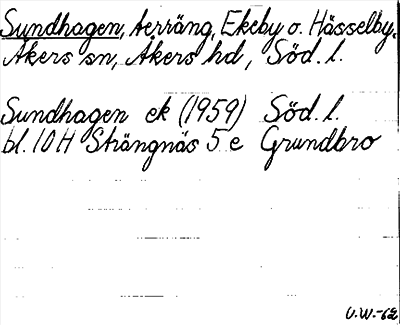 Sundhagen, terräng, Ekeby o. Hässelby,
Åkers sn, Åkers hd, Söd. l.
Sundhagen ek (1959) Söd. l.
bl. 10 H Strängnäs 5 e Grundbro
U.W.-62